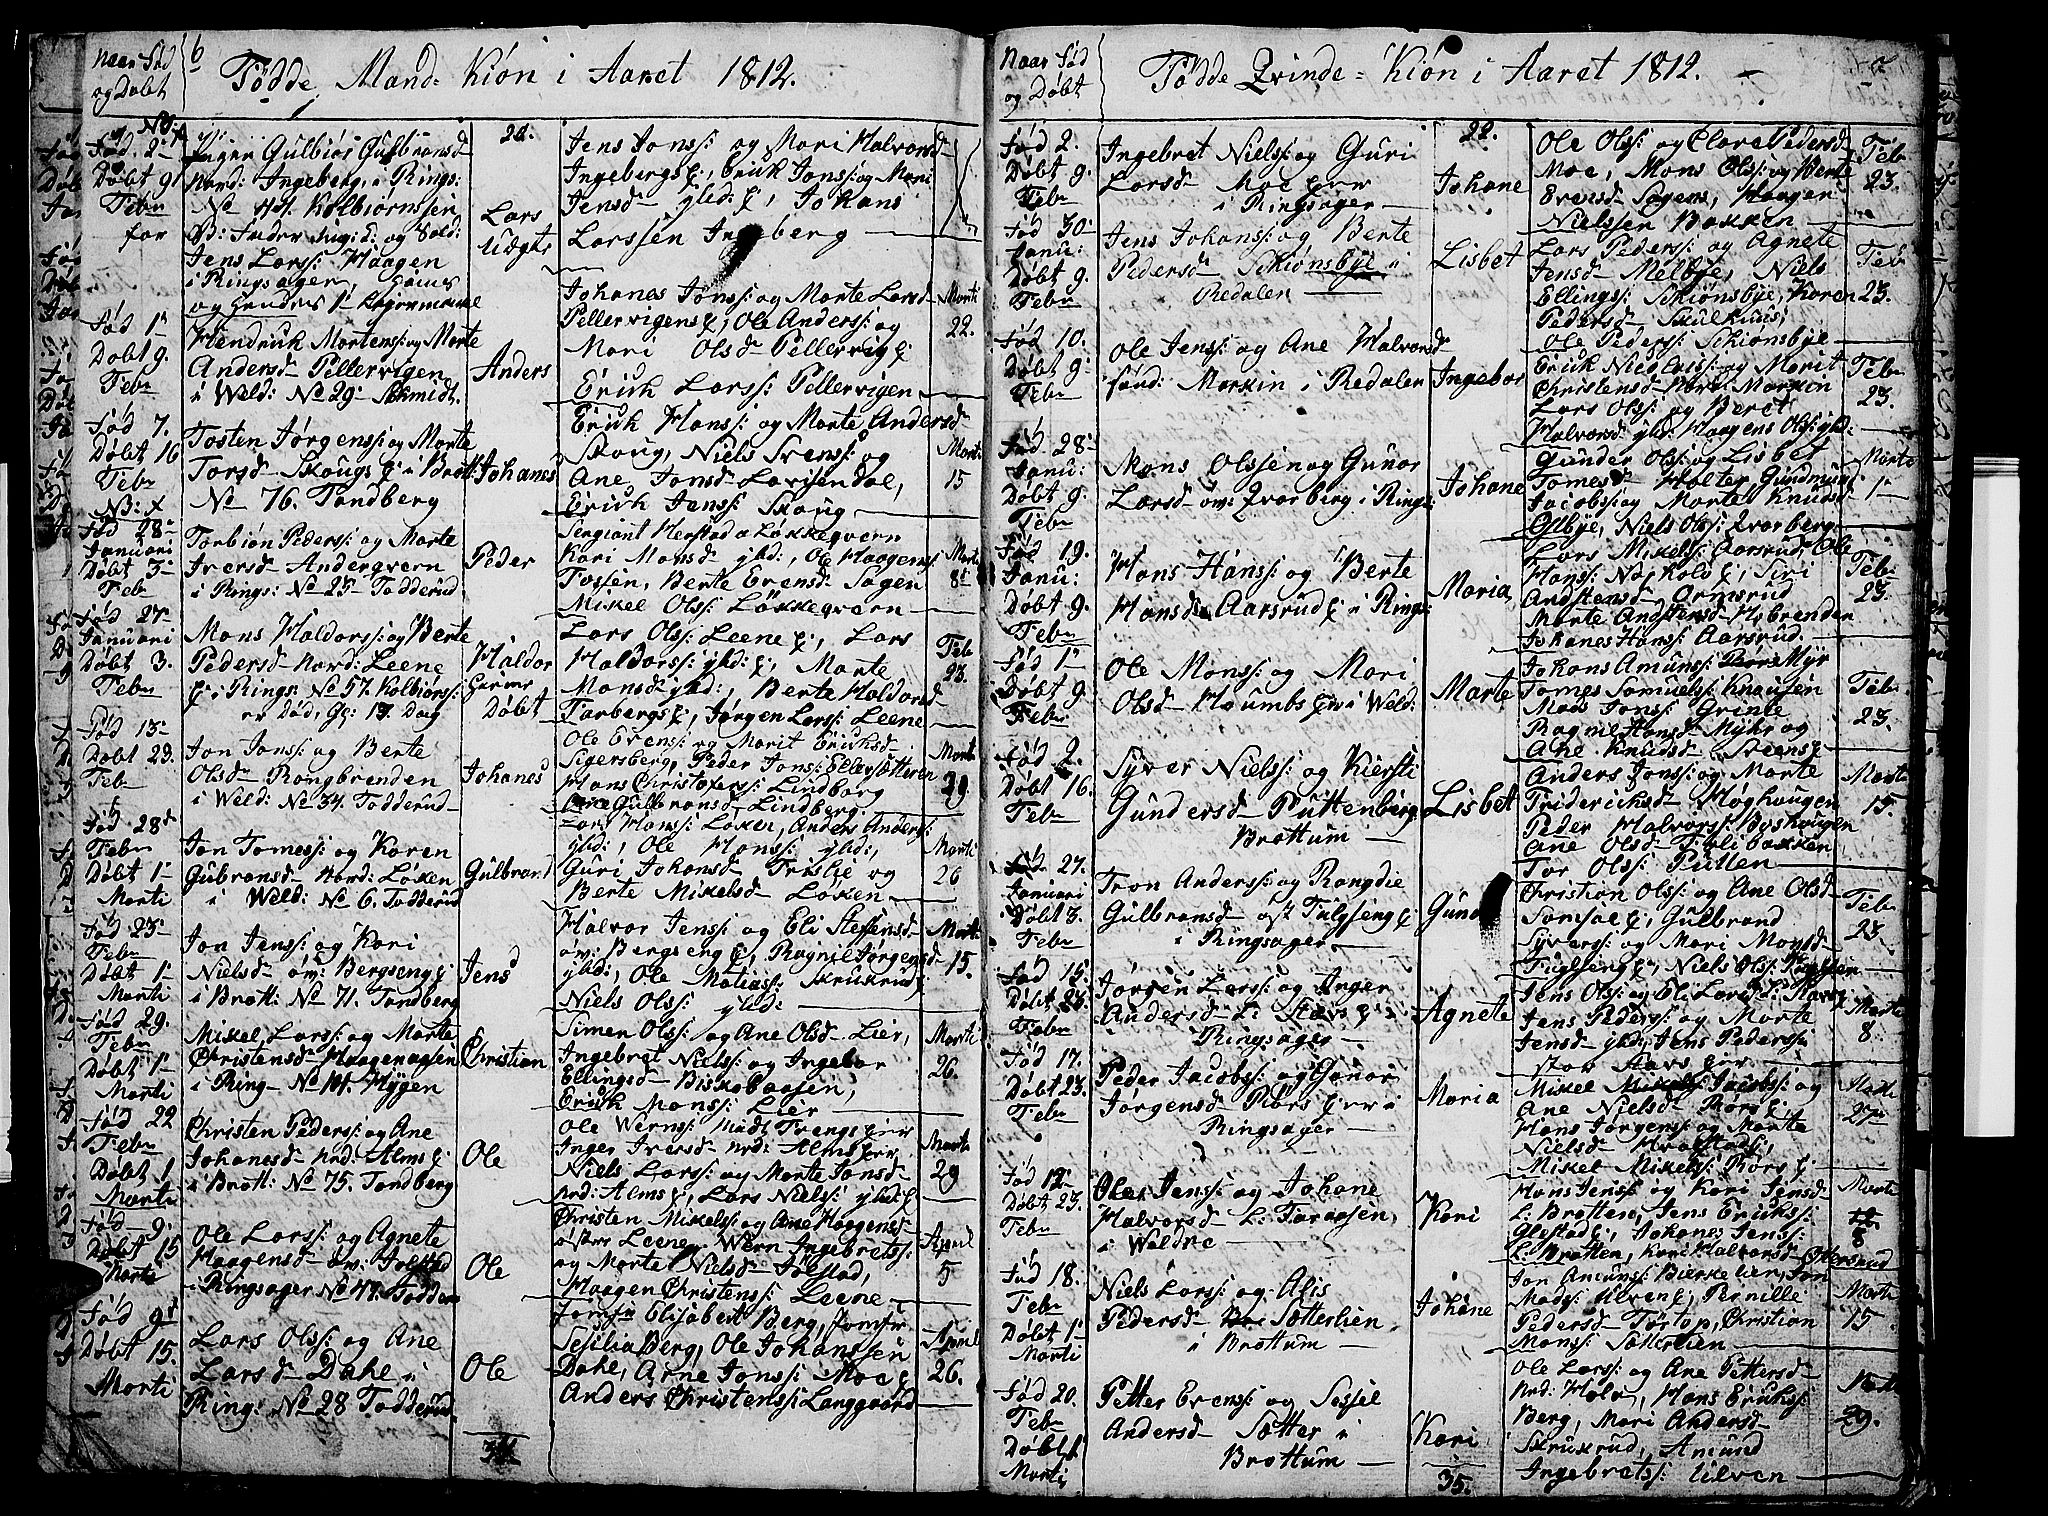 Naar Fød
og Døbt
6
Fødde Mand-Kiøn i Aaret 1812.
Fød 2
Døbt 9
Febr
for
Inger Gulbiør Gulbransd
Nord: Ingeberg, i Rings:
Jens Larss: Haagen
i Ringsager
Lars
Uægte
Jens Jonss: og Mari Halvorsd
Ingebergs E, Erick Jonss: og Mari
Jensd yhld: E, Johans
Larssen Ingeberg
Fød 1
Døbt 9.
Febr
Hendrick Mortenss: og Marte
Andersd Pellervigen
i Weld: No 29 Schmidt.
Anders
Johanes Jonss: og Marte Larsd
Pellervigens E, Ole Anderss: og
Mari Olsd Pellervig E
Erick Larss: Pellervigen
Marti
22.
Fød 7.
Døbt 16
Febr
NB: X
Tosten Jørgenss: og Marte
Torsd Skougs E i Brøtt:
No 76. Tandberg
Johanes
Erick Hanss: og Marte Andersd
Skoug, Niels Svenss: og
Ane Jonsd Lavisendal,
Erick Jenss: Skoug
Marti
15
Fød 28
Januari
Døbt 3
Febr
Torbiøn Pederss: og Marte
Iversd Andergvern
i Rings: No 25 Fodderud
Peder
Sergiant Herstad a Løkkegvern
Kari Monsd yhld:, Ole Haagens:
Fossen, Berte Evensd Sagen
Mikel Olss: Løkkegvern
Marti
8
Fød 27
Januari
Døbt 3.
Febr
Mons Haldorss: og Berte
Pedersd Nord: Leene
E i Rings: No 57. Kolbiørs:
er Død, Gl: 17. Dag
Haldor
Døbt
Lars Olss: Leene E, Lars
Haldorss: yhld: E, Marte
Monsd yhld:, Berte Haldorsd
Farbergs E, Jørgen Larss: Leene
Feb
23.
Fød 13
Døbt 23.
Febr
Jon Jonss: og Berte
Olsd Rongbrenden
i Weld: No 34. Fodderud
Johanes
Ole Evenss: og Marit Ericksd
Sigersberg, Peder Jonss: Ellersøtteren
Hans Christofers: Lindborg
Gulbransd Lindberg.
Marti
29
Fød 28
Febr
Døbt 1
Marti
Jon Tomess: og Karen
Gulbransd Nord: Løken
i Weld: No 6. Fodderud
Gulbrand
Lars Hanss: Løken, Anders Anderss:
yhld:, Ole Hanss: yhld:,
Guri Johansd Frislie og
Berte Mikelsd Løken
Marti
26
Fød 23
Febr
Døbt 1
Marti
Jon Jenss: og Kari
Nielsd øv: Bergseng E
i Brøtt: No 71. Tandberg
Jens
Halvor Jenss: og Eli Steffensd
øv: Bergseng E, Ragnil Jørgensd
yhld:, Ole Matiass: Skrukrud,
Niels Olss: yhld:
Marti
15.
Fød 29.
Febr
Døbt 1
Marti
Mikel Larss: og Marte
Christensd Haagenaasen
i Ring No 101. Hygen
Christian
Simen Olss: og Ane Olsd Lier,
Ingebret Nielss: og Ingebor
Ellingsd Biskobaasen,
Erick Monss: Lier
Marti
26.
Fød 22
Febr
Døbt 1
Marti
Christen Pederss: og Ane
Johanesd Nrd: Alms E
i Brøtt: No 75. Tandberg
Ole
Ole Wernss: Madt Frengs Eier
Inger Iversd Nrd: Alms Eier
Niels Larss: og Marte Jonsd
Nrd: Alms E, Lars Nielss: yhld: E
Marti
29
Fød 9.
Døbt 15
Marti
Ole Larss: og Agnete
Haagensd øv: Jølstad
i Ringsager No 47. Fodderu
Ole
Christen Mikelss: og Ane Haagensd
øster Leene, Wern Ingebretss:
og Marte Nielsd Jølstad,
Haagen Christenss: Leene
April
5
Fød 9
Døbt 15.
Marti
Lars Olss: og Ane
Larsd Dahl i
Ring: No 28 Fodderud
Ole
Jomfr Elisabert Berg, Jomfr
Sesilia Berg, Ole Johanssen
Dahl, Arne Jonss: Moe E
Anders Christenss: Langgaard
April
26.
Naar Fød
og Døbt
Fødde Qvinde-Kiøn i Aaret 1812.
7
Fød 2.
Døbt 9.
Febr
Ingebret Nielss: og Guri
Larsd Moe Eier
i Ringsager
22.
Johane
Ole Olss: og Clare Pedersd
Moe, Mons Olss: og Berte
Evensd Sagens, Haagen
Nielssen Bakken
Feb
23.
Fød 30
Janu:
Døbt 9.
Febr
Jens Johanss: og Berte
Pedersd Schiønsbye i
Redalen
Lisbet
Lars Pederss: og Agnete
Jensd Melbye, Niels
Ellingss: Schiønsbye, Karen
Pedersd Skulhuus,
Ole Pederss: Schiønsbye
Feb
23.
Fød 10.
Døbt 9
Febr
Ole Jenss: og Ane Halvorsd
sønd: Markin i Redalen
Ingebor
Erick Nicolaiss: og Marit
Christensd Nord: Markin
Lars Olss: og Beret
Halvorsd yhld: Haagens Olss: yhld:
Febr
23.
Fød 28
Janu:
Døbt 9.
Febr
Mons Olssen og Gunor
Larsd øv: Qvarberg i Rings:
Johane
Gunder Olss: og Lisbet
Tomesd Holter Gundmund
Jacobss: og Marte Knudsd
Gilbye, Niels Olss: Qvarberg
Marti
1
Fød 19.
Janu:
Døbt 9.
Febr
Hans Hanss: og Berte
Hansd Aarsrud E i Rings:
Maria
Lars Mikels: Aarsrud, Ole
Hanss: Nøskold E, Siri
Andstensd Ormsrud
Marte Andstensd Nobrenden
Johanes Hanss: Aarsrud
Febr
23.
Fød 1
Døbt 9.
Febr
Ole Monss: og Mari
Olsd Houmbs Eier i Weld:
Marte
Johans Amunss: Rørs Myr
Tomes Samuels: Knausen
Mads Jonss: Grinle
Ragnil Hansd Myhr og
Ane Knudsd Steens E
Febr
23.
Fød 2.
Døbt 16.
Febr
Syver Nielss: og Kiersti
Gundersd Puttenberg
Brøttum
Lisbet
Anders Jonss: og Marte
Friderichsd Høghaugen
Peder Halvorss: Boshaugen
Ane Olsd Fiolibakken
Tor Olss: Putten
Marti
15.
Fød 27.
Januari
Døbt 3.
Febr
Tron Anderss: og Rangdie
Gulbransd øst Fulgseng E
i Ringsager
Gund
Christian Olss: og Ane Olsd
Samsal E, Gulbrand
Syverss: og Mari Monsd
Fuglseng E, Niels Olss: Fuglsen
Febr
23.
Fød 15
Døbt 23.
Febr
Jørgen Larss: og Inger
Andersd L: Stavs E i
Ringsager
Agnete
Jens Olss: og Eli Larsd L: Stavs
Jens Pederss: og Marte
Jensd yhld: Jens Pederss:
stor Stavs Eier
Marti
8
Fød 17.
Døbt 23.
Febr
Peder Jacobss: og Gunor
Jørgensd Rørs Eier i
Ringsager
Maria
Mikel Jacobss: og
Ane Nielsd Rørs E
Hans Jørgenss: og Marte
Nielsd Krolstad,
Mikel Mikelss: Rørs E
Marti
27
Fød 12
Døbt 23.
Febr
Ole Jenss: og Johane
Halvorsd L: Faraasen,
i Weldre
Kari
Hans Jenss: og Kari Jensd
L: Bratten, Jens Erikss:
Glestad E, Johans Jenss:
L: Bratten, Kari Halvorsd Ommersrud
Marti
8
Fød 18.
Febr
Døbt 1
Marti
Niels Larss: og Alis
Pedersd Sætterlien
i Brøttum
Johane
Jon Amunss: Bierkelien, Jon
Madss: Ulven E, Pernille
Pedersd Fortop, Christian
Monss: Sætterlien
Marti
15.
Fød 20.
Febr
Døbt 1
Marti
Petter Evenss: og Sessel
Andersd Sætter i
Brøttum
Kari
Ole Larss: og Ane Pettersd
Nrd: Holo, Hans Erichss:
Berg, Mari Andersd
Skrukrud, Amund
Ingebretss: Ulven
Marti
29.
35.